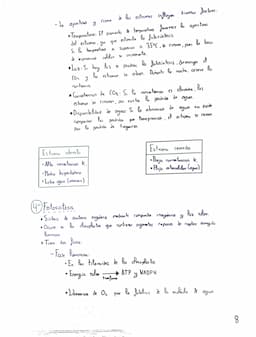 - La apertura y cierre de los estomas influyen diversos factores:
• Temperatura: El aumento de temperatura favorece la apertura
del estoma, ya que estimula la fotosíntesis.
Si la temperatura es superior a 35°C, se cierran, para
• Luz: Si hay luz se produce la fotosíntesis,
CO₂ y los estomas se abren. Durante la noche, ocurre lo
contrario
• Concentración de CO₂: Si la concentración es elevada, los
estomas se cierran, se evita la pérdida de agua.
• Disponibilidad de agua: Si la absorción de agua no puede
compensar las pérdidas por transpiración, el estoma se cierra
por la pérdida de turgencia
Estoma abierto
- Alta concentración K
- Medio hipertónico
- Entra agua (osmosis)
Estoma cerrado
- Baja concentración K
- Baja
4- Fotosíntesis
• Síntesis de materia orgánica mediante compuestos inorgánicos y luz solar.
• Ocurre en los cloroplastos que contienen pigmentos capaces de captar energía
luminosa
• Tiene dos fases:
- Fase luminosa:
• En los tilacoides de los cloroplastos
• Energía solar → ATP y NADPH
• Liberación de O₂ por la fotólisis de la molécula de agua
8